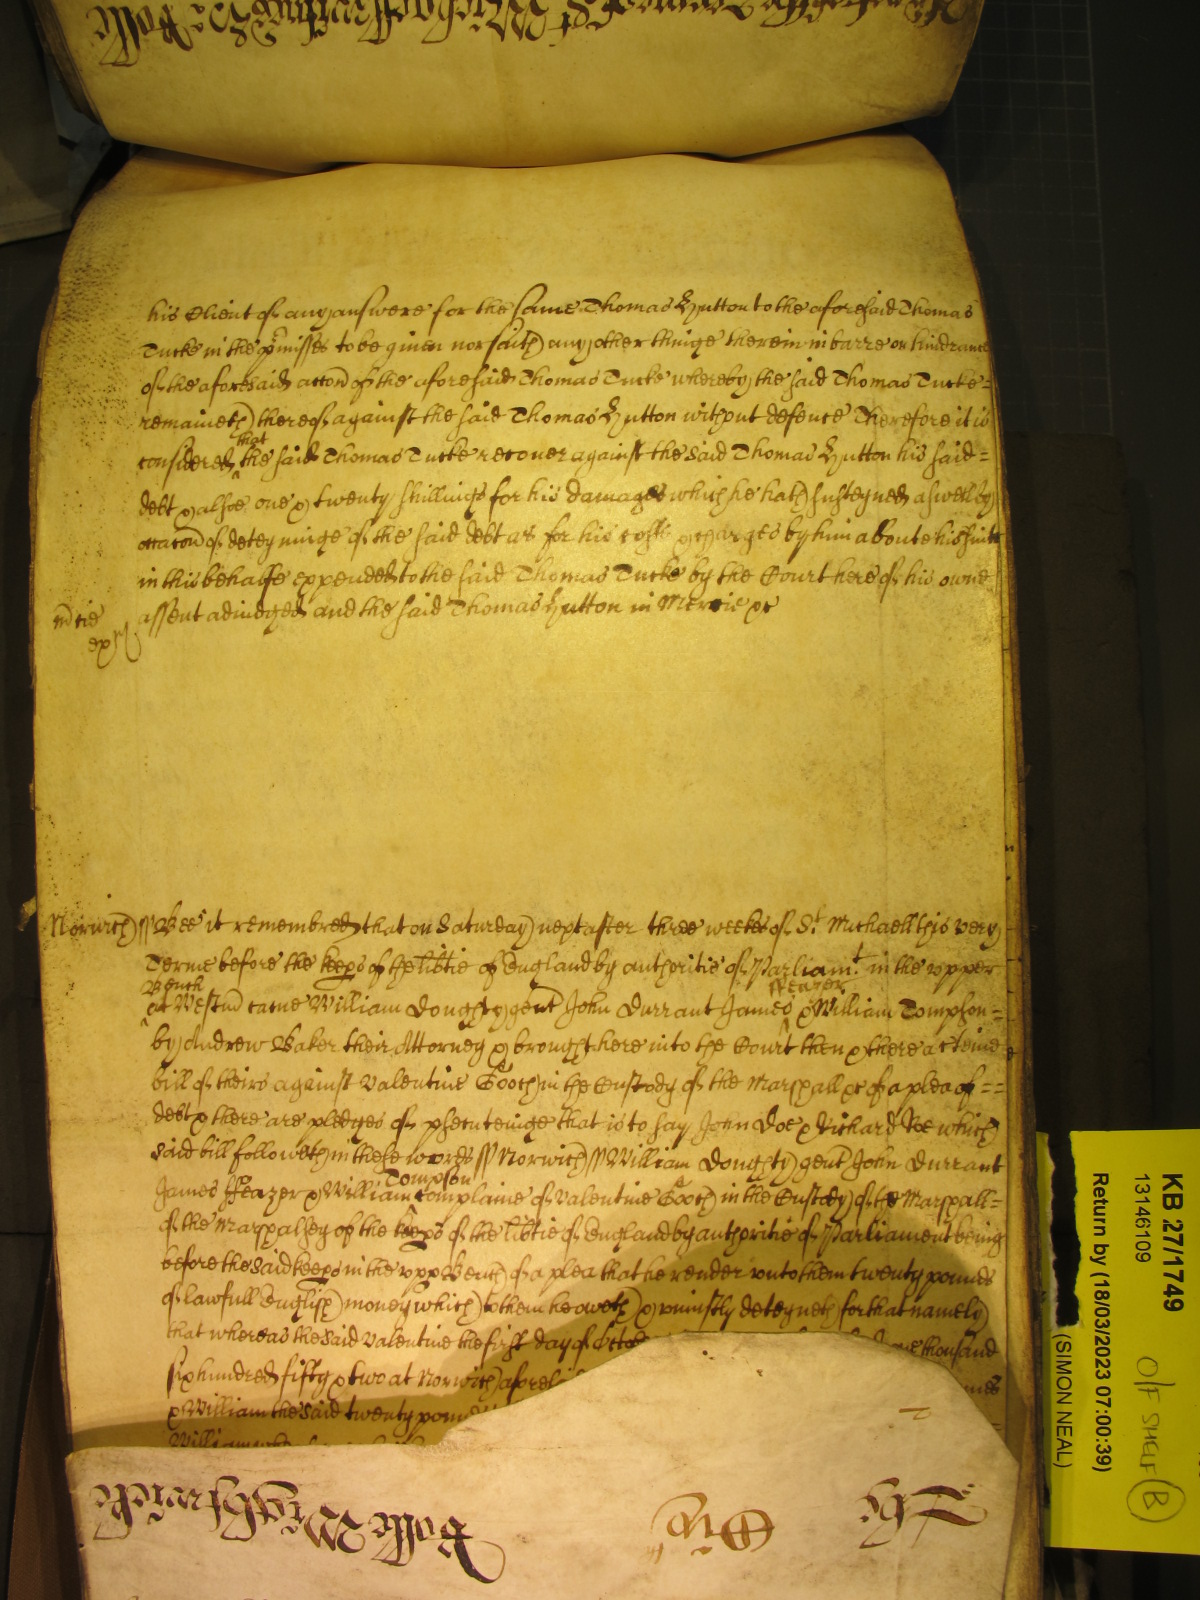 his Client of any answere for the same Thomas Hutton to the aforesaid Thomas
Tucke in the p̱misses to be given nor saith any other thinge therein in barre or hindrance
of the aforesaid accon̄ of the aforesaid Thomas Tucke whereby the said Thomas Tucke =
remaineth thereof against the said Thomas Hutton without defence Therefore it is
that
considered the said Thomas Tucke recover against the said Thomas Hutton his said =
debt & alsoe one & twenty shillings for his damages which he hath susteyned aswell by
occacon̄ of deteyninge of the said debt as for his costs & charges by him aboute his suite
in this behalfe expended to the said Thomas Tucke by the Court here of his owne
assent adiudged and the said Thomas Hutton in Mercie &c
m̄cie
Norwich ss Bee it remembred that on Saturday next after three weekes of St Michaell this very
Terme before the keeps of the lib̄tie of England by authoritie of Parliamt in the upper
Bench
Feazer
at Westm̄ came William Doughty gent John Durrant James & William Tompson =
by Andrew Baker their Attorney & brought here into the Court then & there a c̄teine
bill of theirs against Valentine Gooch in the Custody of the Marshall &c of a plea of ==
debt & there are pledges of p̱secuteinge that is to say John Doe & Richard Roe which
said bill followeth in these words ss Norwich ss William Doughty gent John Durrant
Tompson
James Feazer & William complaine of Valentine Gooch in the Custody of the Marshall =
of the Marshalsey of the keeps of the lib̄tie of England by authoritie of Parliament being
before the said keeps in the upp Bench of a plea that he render unto them twenty pounds
of lawfull English money which to them he oweth & uniustly deteyneth for that namely
that whereas the said Valentine the first day of Octo
one thousand
six hundred fifty & two at Norwich afores
& William the said twenty pound
William
Rolle Wi: Wightwicke
KB 27/1749
13146109
Return by (18/03/2023 07:00:39)
(SIMON NEAL)
O/F SHELF B